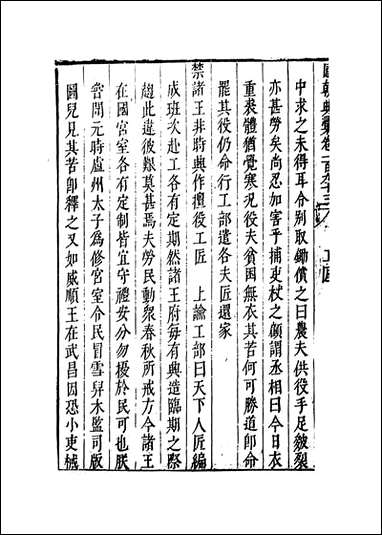 國朝典彙卷一百九十三 工匠
中求之未得耳令别取鋤償之曰農夫供役手足皴裂
亦甚勞矣尚忍加害乎捕吏杖之顧謂丞相曰今日衣
重裘體猶覺寒况役夫貧困無衣其苦何可勝道卽命
罷其役仍命行工部遣各夫匠還家
禁諸王非時興作擅役工匠 上諭工部曰天下人匠編
成班次赴工各有定期然諸王府每有興造臨期之際
趨此違彼艱莫甚焉夫勞民動衆春秋所戒方今諸王
在國宫室各有定制皆宜守禮安分勿擾於民可也朕
嘗聞元時盧州太子爲修宫室令民冒雪舁木監司版
圖兒見其苦卽釋之又如威順王在武昌因恐小吏棫